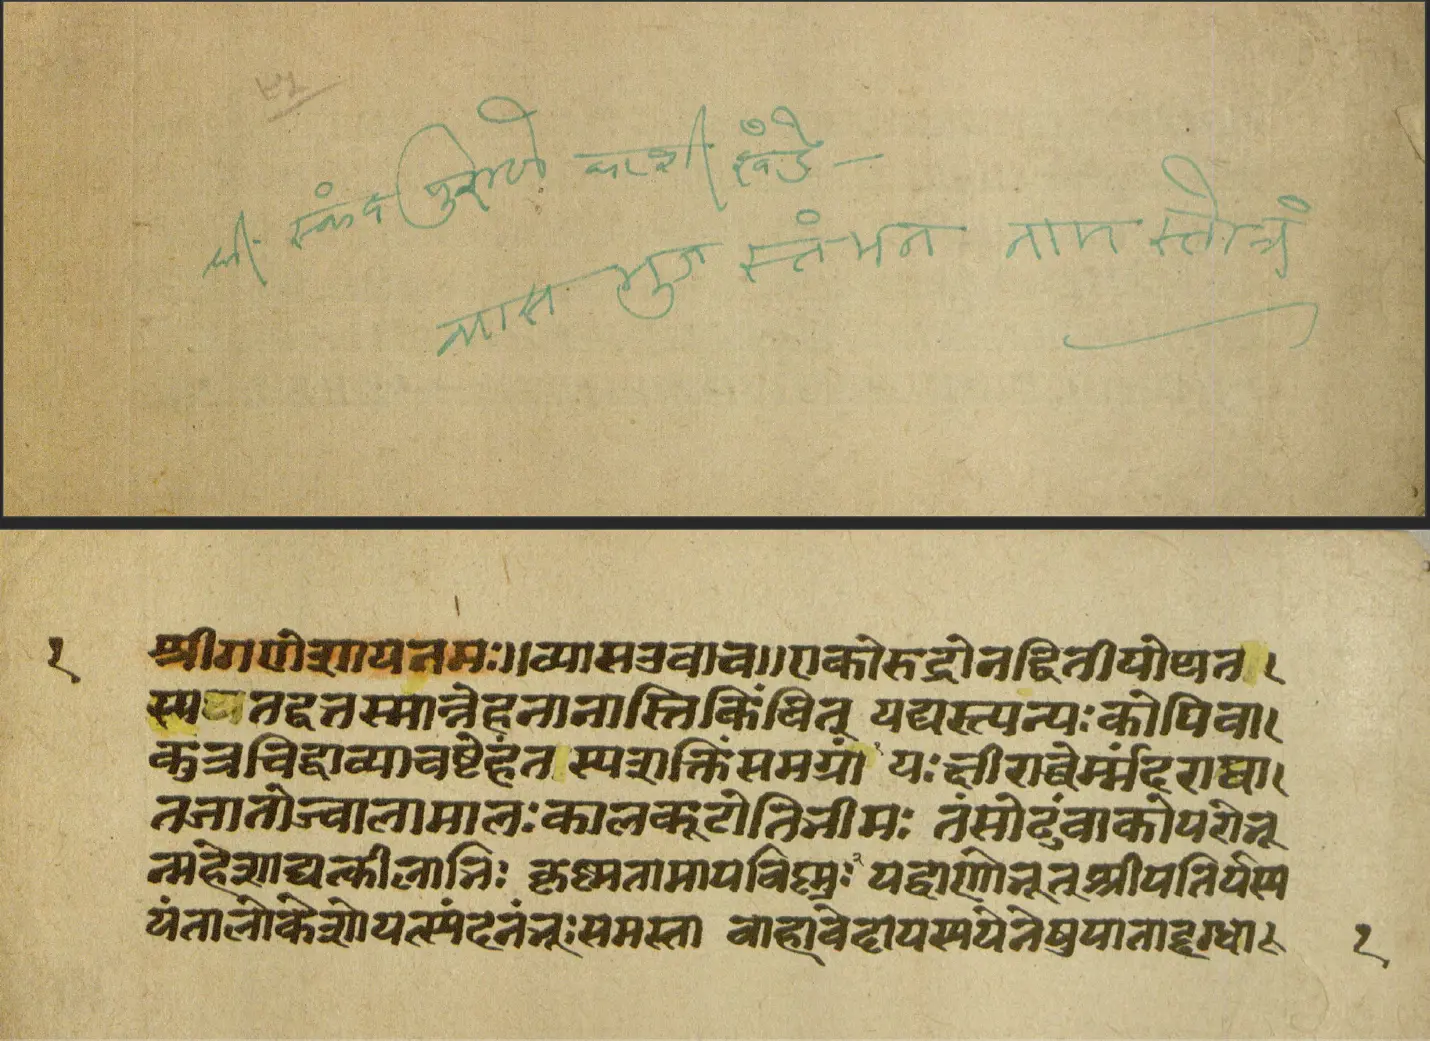 श्री स्कंद पुराणे काशी खंडे —
व्यास भुज स्तंभन नाम स्तोत्रं
१
श्रीगणेशायनमः।।व्यासउवाच।।एकोरुद्रोनद्वितीयोयत।
स्प तद्वतस्मान्नेहनानास्तिकिंचित् यद्यस्त्पन्पःकोपिवा।
कुत्रचिद्वाव्याचष्टेहंत स्पशक्तिंसमग्रां२ यःक्षीराब्धेर्म्मंदराघा।
तजातोज्वालामालःकालकूटोतिभीमः तंसोढुंवाकोपरोभू
न्महेशाद्यत्कीलाभिः कृष्मतामापविष्मुः२ यद्वाणोभूत्श्रीपतिर्यस्प
यंतालोकेशोयत्स्पंदनंभूःसमस्ता वाहावेदायस्पयेनेषुपाताद्दग्धा।
१